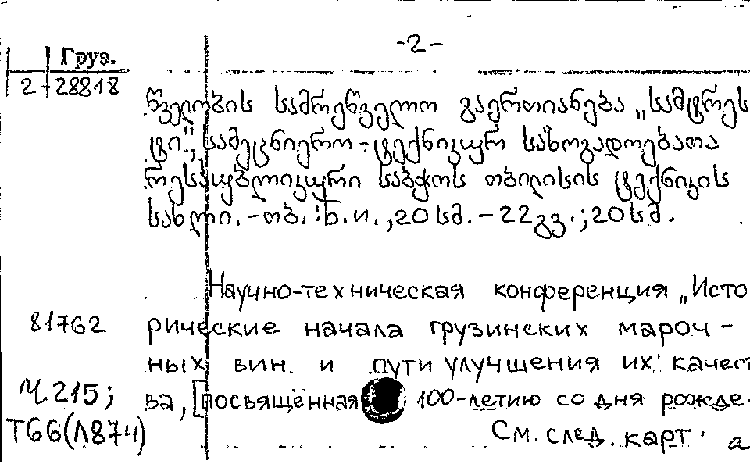 -2-
Груз.
2-28818
წველობის სამრეწველო გაერთიანება „სამტრეს
ტი", სამეცნიერო-ტექნიკურ საზოგადოებათა
რესპუბლიკური საბჭოს თბილისის ტექნიკის
სახლი. - თბ. : Б.и. ,20 სმ. - 22 გვ. ; 20 სმ.
Научно-техническая конференция „Исто
81762
рические начала грузинских мароч-
ных вин и пути улучшения их качест
Ч 215;
ва, [посвященная 100-летию со дня рожде-
Т66(Л874)
См. след. карт